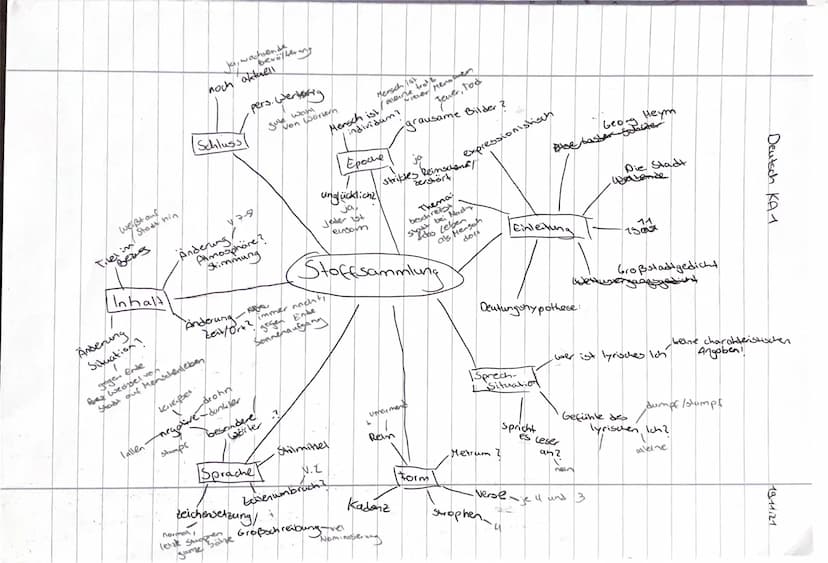 Deutsch KA 1
19.11.21
Stoffsammlung
Schluss
noch aktuell
ja, wachsende
bevölkerung
pers. Wertung
gute Wahl
von Wörtern
Epoche
Mensch ist
individuum?
Mensch ist
alleine trotz
vieler Menschen
grausame Bilder?
Feuer, Tod
striktes Reimschema/
zerstört
ja
unglücklich?
ja,
jeder ist
einsam
Einleitung
expressionistisch
Georg Heym
Die Stadt
1911
Großstadtgedicht
Deutungshypothese:
Thema:
beschreibt
Stadt bei Nacht
Leben
als Mensch
dort
Sprech-
situation
wer ist lyrisches Ich
keine charakteristischen
Angaben!
Gefühle des
lyrischen Ich?
dumpf/stumpf
alleine
spricht
es Leser
an?
nein
Form
Reim
umarmend
Metrum?
Verse je 4 und 3
Strophen 4
Kadenz
Sprache
besondere
Wörter ?
negative
kreißen
drohn
dunkler
stumpf
lallen
Stilmittel
Zeilenumbruch?
V. 2
Zeichensetzung/
Großschreibung
normal,
letzte Strophen
ganze Sätze
bei
Nominalisierung
Inhalt
Titel im
Bezug
weißt auf
Stadt hin
Änderung
Atmosphäre?
Stimmung
V 7-9
Änderung
Zeit/Ort?
immer nacht,
gegen Ende
Sonnenaufgang
Änderung
Situation?
gegen Ende
Wechsel von
Stadt auf Menschenleben